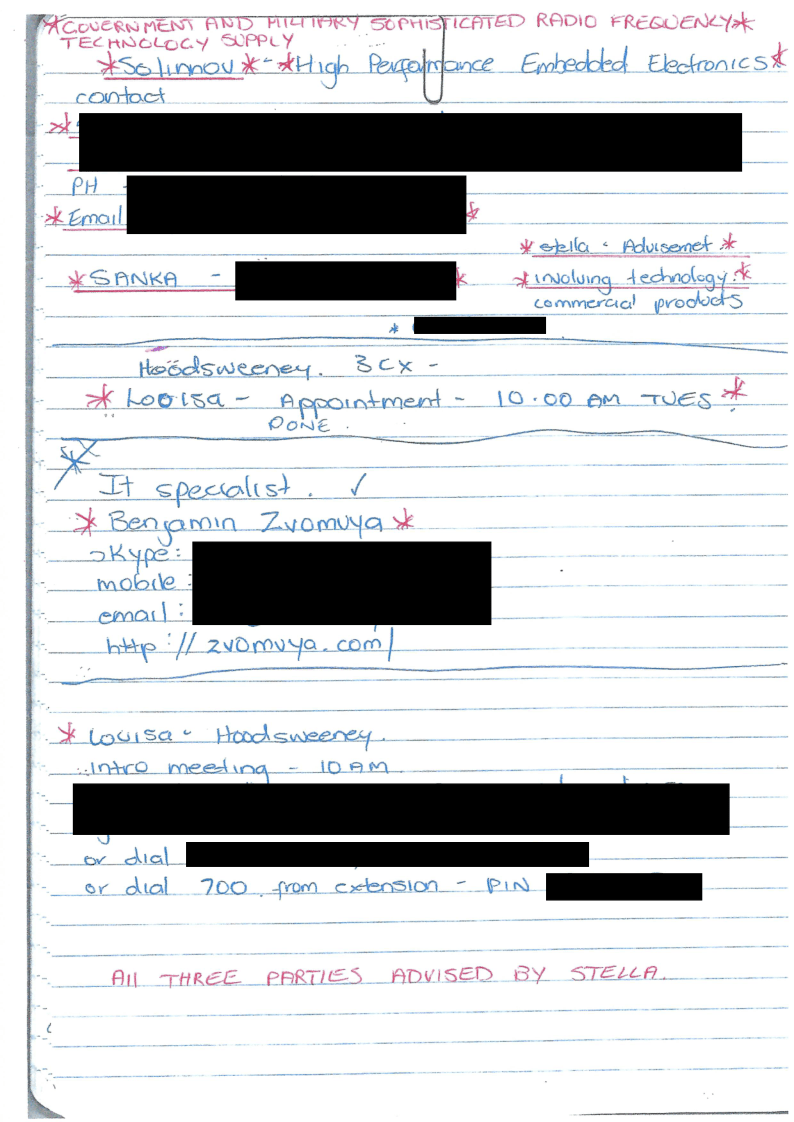 *GOVERNMENT AND MILITARY SOPHISTICATED RADIO FREQUENCY*
TECHNOLOGY SUPPLY
*Solinnov*-*High Performance Embedded Electronics*
contact
*
PH -
*Email *
*stella - Advisemet.*
*SANKA - *
*involving technology.*
commercial products
*
Hoodsweeney. 3CX -
*Looisa - Appointment - 10.00 AM TUES*
DONE.
*
It specialist. ✓
*Benjamin Zvomuya*
Skype:
mobile:
email:
http://zvomuya.com/
*Louisa - Hoodsweeney.
Intro meeting - 10AM
or dial
or dial 700 from extension - PIN
All THREE PARTIES ADVISED BY STELLA.